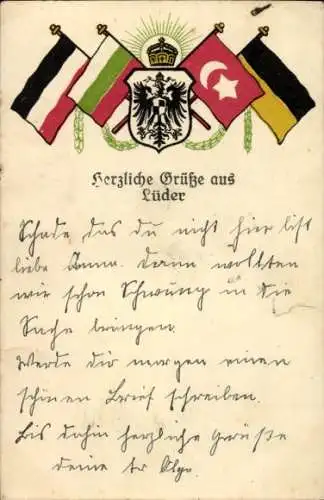 Herzliche Grüße aus
Lüder
Schade das du nicht hier bist
liebe Anna. Dann wollten
wir schon Schwung in die
Sache bringen
Werde dir morgen einen
schönen Brief schreiben.
Bis dahin herzliche Grüße
deine